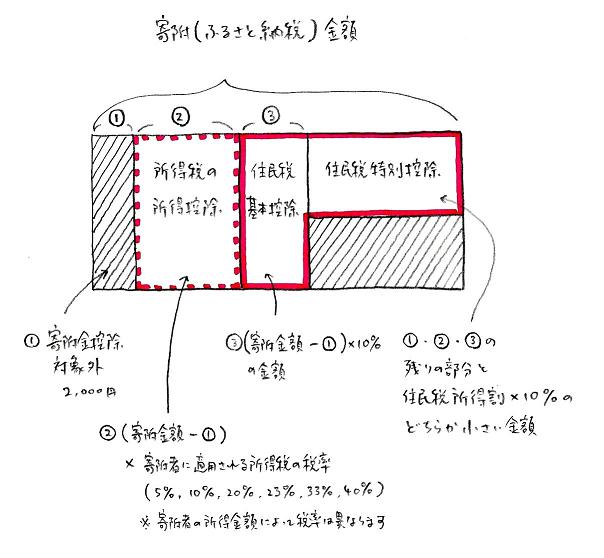 寄附(ふるさと納税)金額
① ② ③
所得税の
所得控除
住民税
基本控除
住民税特別控除
① 寄附金控除
対象外
2,000円
② (寄附金額-①)
× 寄附者に適用される所得税の税率
(5%, 10%, 20%, 23%, 33%, 40%)
※ 寄附者の所得金額によって税率は異なります
③(寄附金額-①)×10%
の金額
①・②・③の
残りの部分と
住民税所得割×10%の
どちらか小さい金額